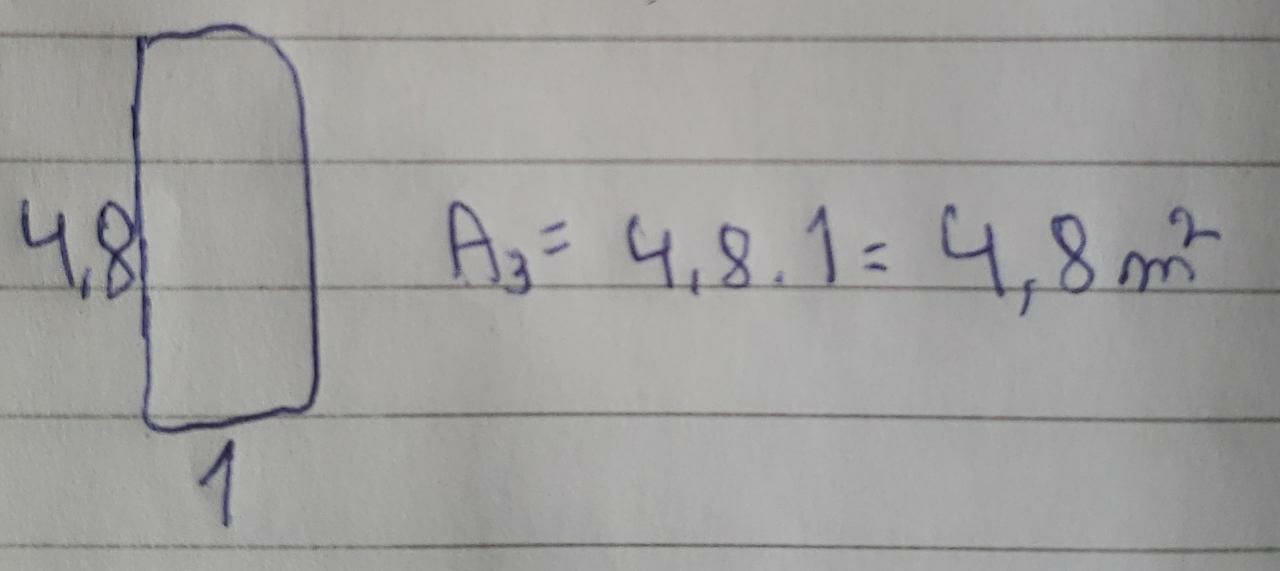 4,8
A₃ = 4,8 . 1 = 4,8 m²
1